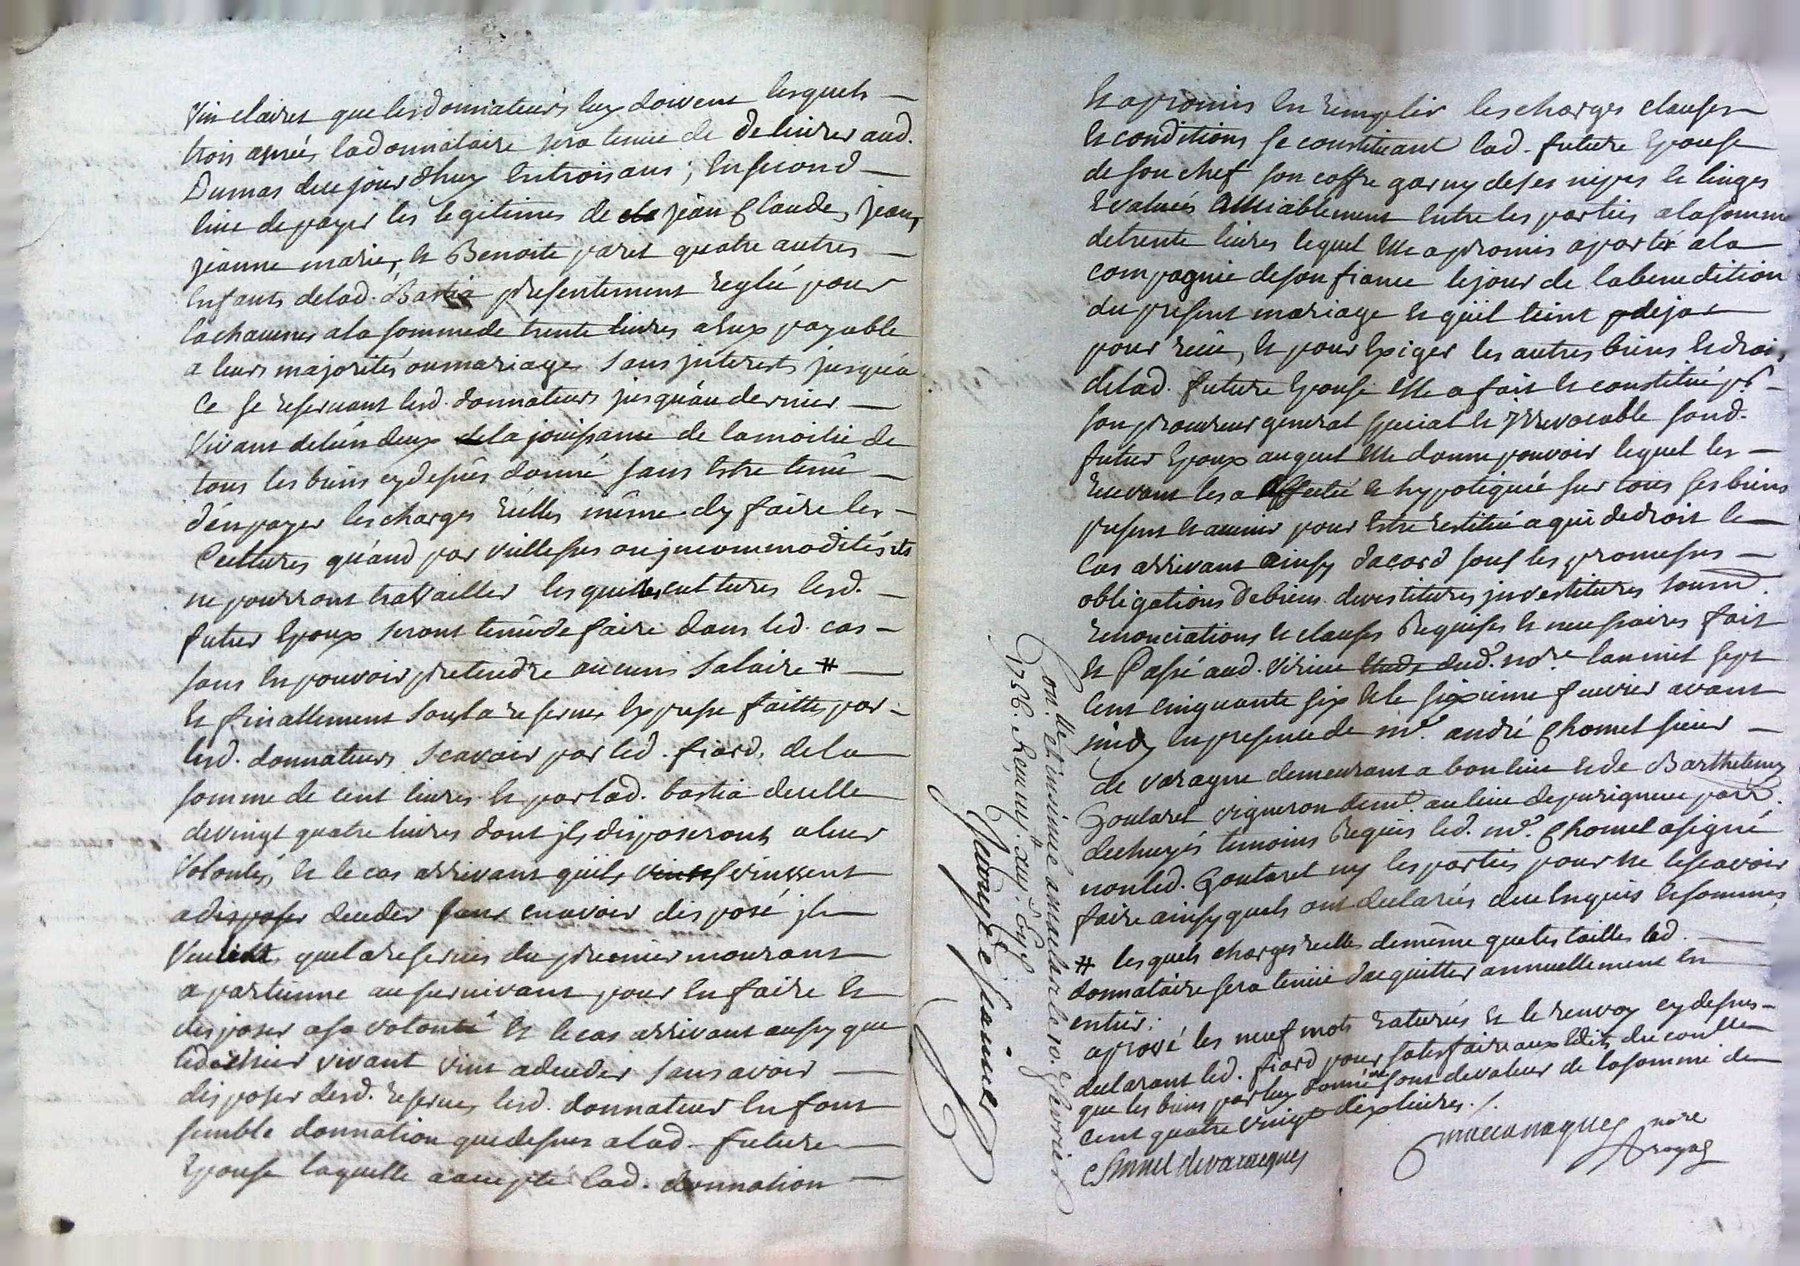 vin clairet que lesd donnateurs luy doivent lesquels
trois asnées ladonnataire sera tenue de delivrer aud.
Dumas du jour dhuy entrois ans, en second
lieu de payer les legitimes de jean Claude, jean,
jeanne marie, et Benoite paret quatre autres
enfants delad. Bastia presentement reglée pour
chacunes ala somme de trente livres aeux payable
a leurs majorités ou mariages sans jnterests jusqua
ce se reservant lesd. donnateurs jusquau dernier
vivant delun deux de la jouissance de la moitié de
tous les biens cydessus donné sans estre tenu
den payer les charges réelles même dy faire les
Cultures quand par viellesses ou jncommodités ils
ne pourront travailler lesquelles cultures lesd.
futur Epoux seront tenu de faire dans led. cas
sans en pouvoir pretendre aucuns salaire #
et finallement sous la reserves expresse faitte par
lesd. donnateurs scavoir par led. fiard, dela
somme de cent livres et par lad. bastia decelle
de vingt quatre livres dont jls disposeront aleur
volontés, et le cas arrivant quils vinssent
a deceder sans en avoir disposé jls
veulent que la reserves du premier mourant
apartienne au survivant pour en faire et
disposer asa volonté et le cas arrivant aussy que
ledernier vivant vint adeceder sans avoir
disposer desd. reserves lesd. donnateurs en font
semble donnation que dessus a lad. future
Epouse laquelle a accepté lad. donnation
et a promis en remplir les charges clauses
et conditions se constituant lad. future Epouse
de son chef son coffre garny de ses nipes et linges
Evalués amiablement entre les parties ala somme
de trente livres lequel elle a promis aporter ala
compagnie de son fiancé le jour de la benedition
du present mariage et quil tient deja
pour reçu, et pour Exiger les autres biens et droits
delad. future Epouse elle a fait et constitué
son procureur general special et jrrevocable sond.
futur Epoux auquel elle donne pouvoir lequel les
recevant les a affecté et hypotequé sur tous ses biens
present et avenir pour estre restitué a qui de droit le
cas arrivant ainsy dacord sous les promesses
obligations de biens devestitures jnvestitures soumd.
renonciations et clauses Requises et necessaires fait
et Passé aud. virieu dud. nore. lan mil sept
cent cinquante six et le sixieme fevrier avant
midy en presence de mr. andré Chomel sieur
de varagne demeurant a bonlieu et de Barthelemy
Goutaret vigneron demt. au lieu de
temoins Requis led. mr. Chomel a signé
non led. Goutaret ny les parties pour ne le scavoir
faire ainsy quels ont declarés de ce enquis et sommés
# lesquels charges reelles de même que les tailles lad.
donnataire sera tenue dacquitter annuellement en
entier.
aprové les neuf mots raturés et le renvoy cy dessus
declarant led. fiard pour satisfaire aux Edits du conlle
que les biens par luy donné sont de valeur de la somme de
cent quatre vingt dix livres./.
Chomel devaragnes
nore
royal
Conlle. et insinué a le 10. fevrier
1756. Remis.